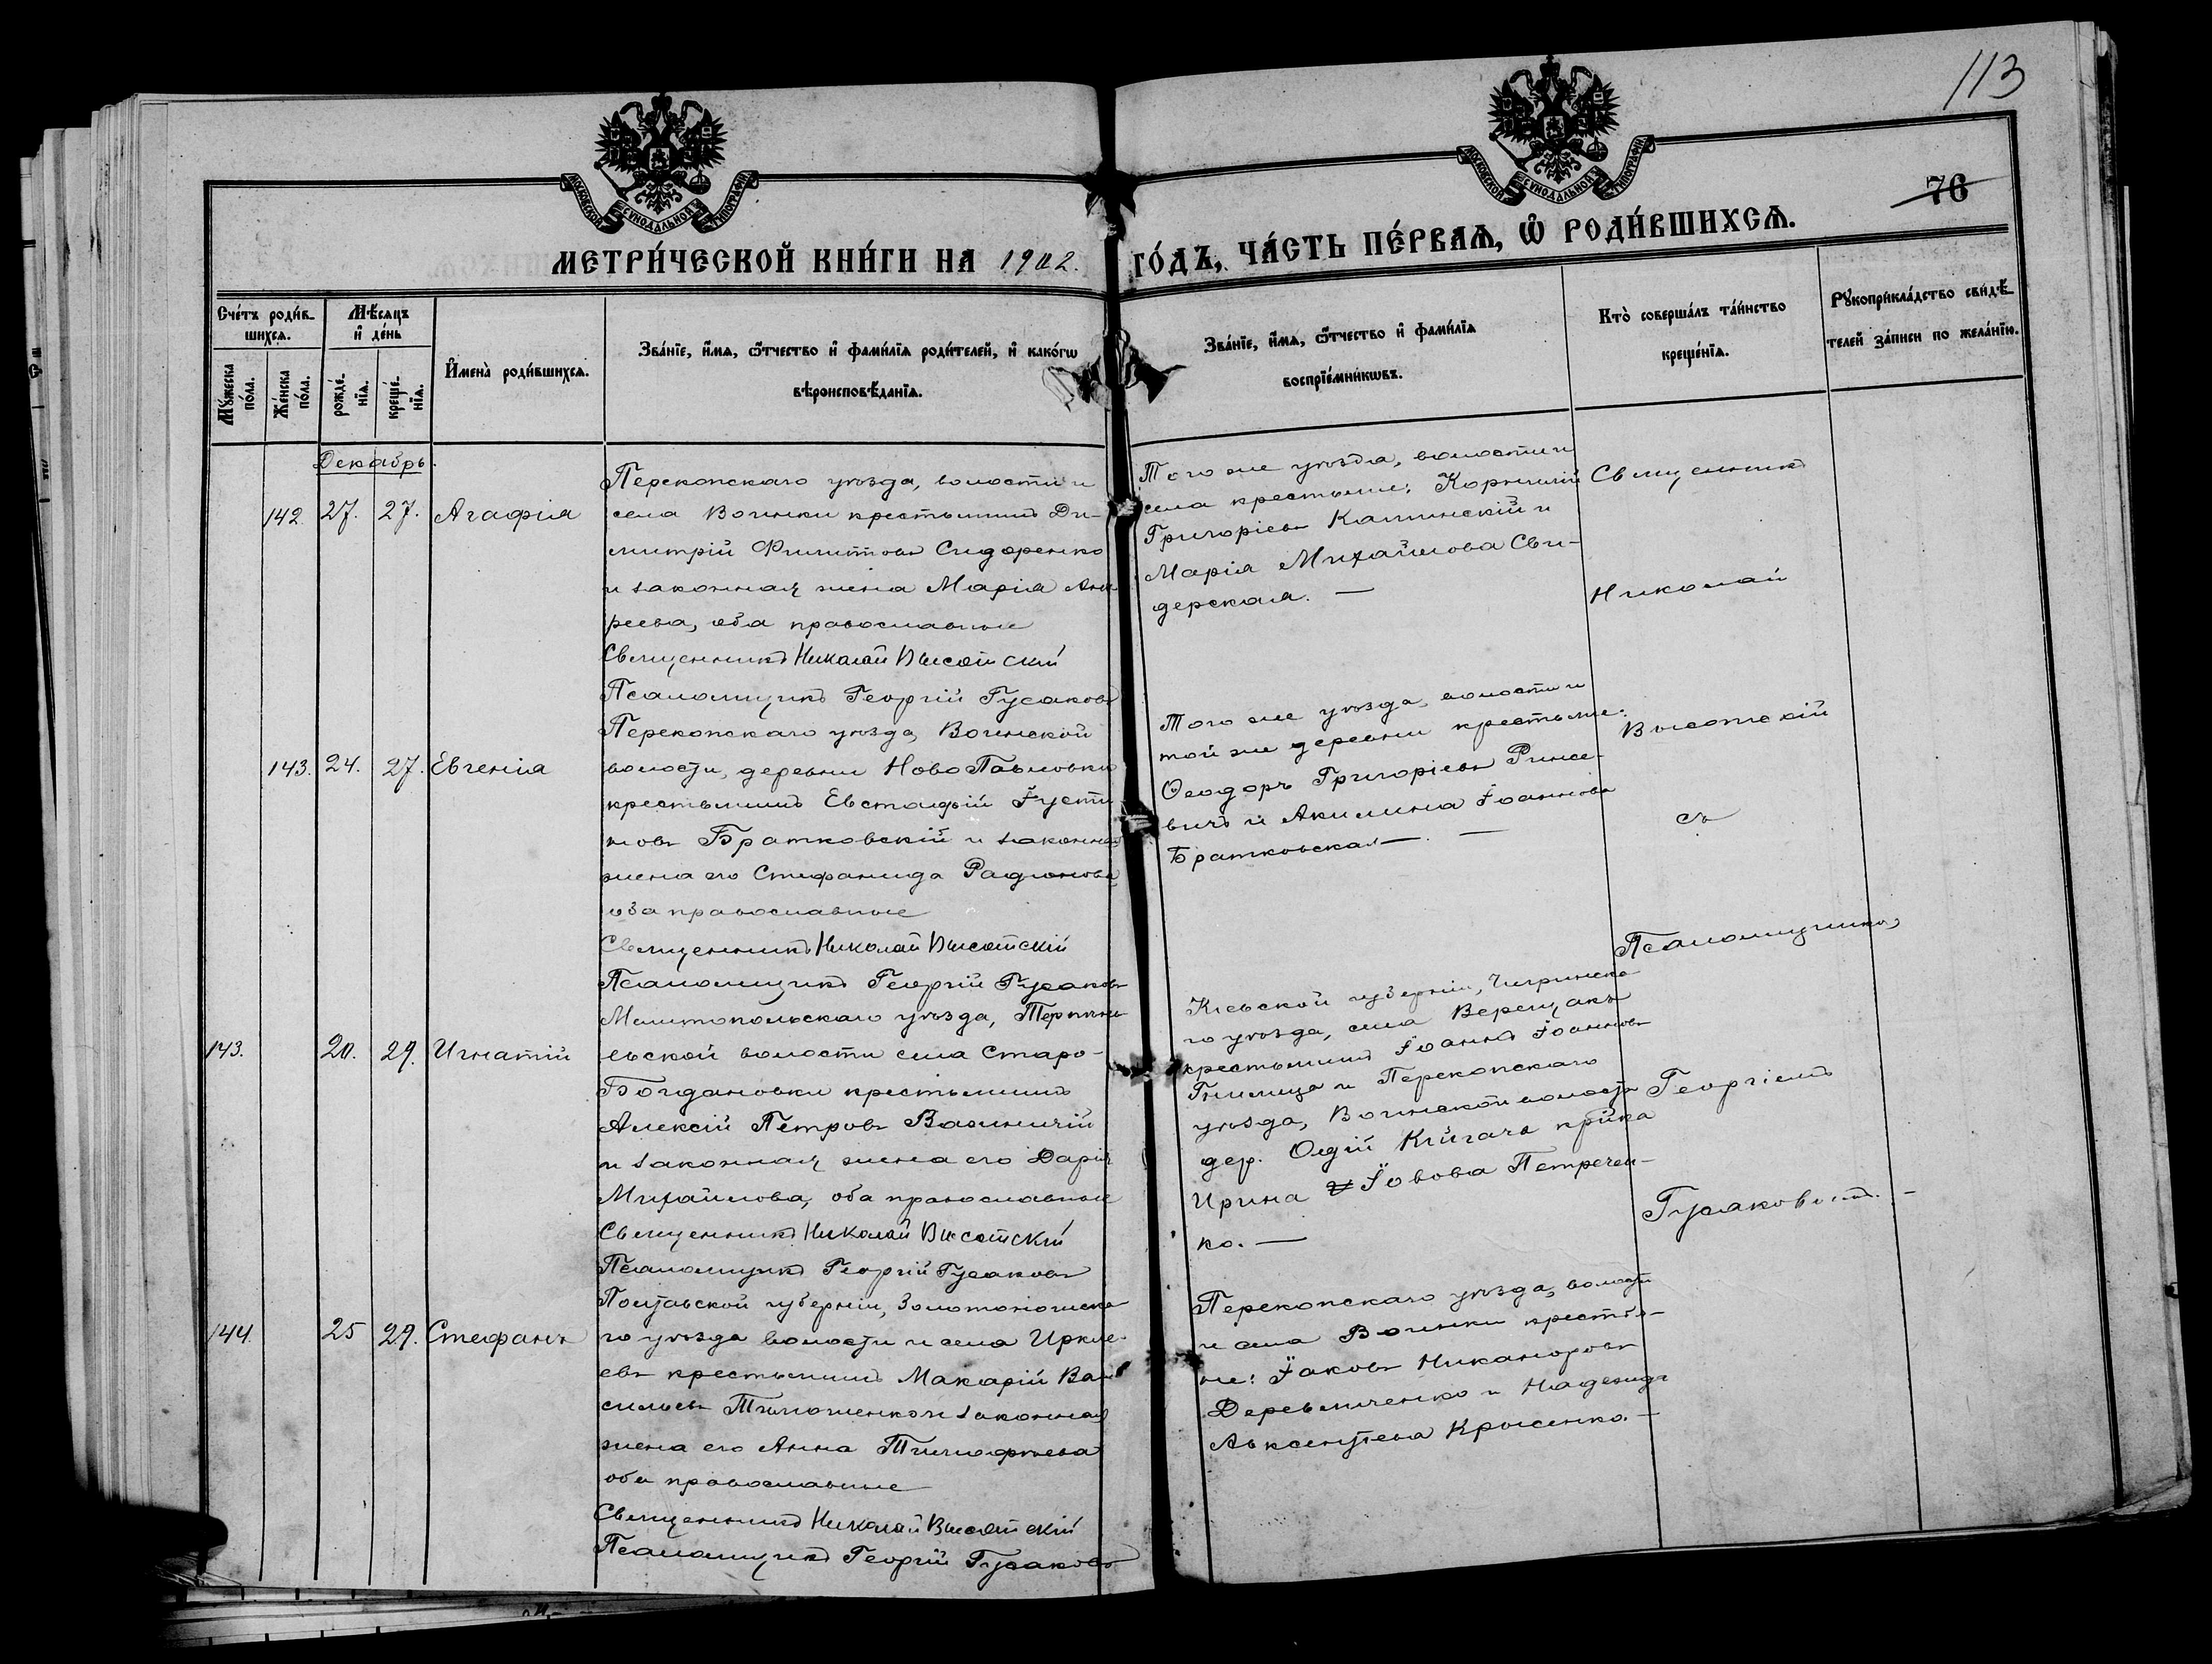 113
76
МОСКОВСКОЙ СѴНОДАЛЬНОЙ ТИПОГРАФІИ
МОСКОВСКОЙ СѴНОДАЛЬНОЙ ТИПОГРАФІИ
МЕТРИ́ЧЕСКОЙ КНИ́ГИ НА 1902. ГО́ДЪ, ЧА́СТЬ ПЕ́РВАѦ, Ѡ҆ РОДИ́ВШИХСѦ.
Сче́тъ роди́в-
шихсѧ.
Мꙋ́жеска по́ла.
Же́нска по́ла.
Мѣ́сѧцъ
и҆ де́нь
рожде́-
нїѧ.
креще́-
нїѧ.
И҆мена̀ роди́вшихсѧ.
Зва́нїе, и҆́мѧ, ѻ҆́тчество и҆ фами́лїѧ роди́телей, и҆ како́гѡ
вѣроисповѣ́данїѧ.
Зва́нїе, и҆́мѧ, ѻ҆́тчество и҆ фами́лїѧ
воспрїе́мникѡвъ.
Кто̀ соверша́лъ та́инство
креще́нїѧ.
Рꙋкоприкла́дство свидѣ́-
телей за́писи по жела́нїю.
Декабрь.
142. 27. 27. Агафія
Перекопскаго уѣзда, волости и
села Воинки крестьянинъ Ди-
митрій Филиповъ Сидоренко
и законная жена Марія Анд-
реева, оба православные
Священникъ Николай Высотскій
Псаломщикъ Георгій Гусаковъ
Того же уѣзда, волости и
села крестьяне: Корнилій
Григоріевъ Калинскій и
Марія Михайлова Сви-
дерская. —
143. 24. 27. Евгенія
Перекопскаго уѣзда, Воинской
волости, деревни НовоПавловки
крестьянинъ Евстафій Іусти
новъ Братковскій и законная
жена его Стефанида Радионова
оба православные
Священникъ Николай Высотскій
Псаломщикъ Георгій Гусаковъ
Того же уѣзда, волости и
той же деревни крестьяне:
Ѳеодоръ Григоріевъ Ринке-
вичъ и Акилина Іоаннова
Братковская — —
143. 20. 29. Игнатій
Мелитопольскаго уѣзда, Терпѣни-
евской волости села Старо-
Богдановки крестьянинъ
Алексій Петровъ Важничій
и законная жена его Дарія
Михайлова, оба православные
Священникъ Николай Высотскій
Псаломщикъ Георгій Гусаковъ
Кіевской губерніи, Чигринска
го уѣзда, села Верещакъ
крестьянинъ Іоаннъ Іоанновъ
Гнилица и Перекопскаго
уѣзда, Воинской волости
дер. Олдій Кійгачъ кр-йка
Ирина Іовова Петречен-
ко. —
144. 25 29. Стефанъ
Полтавской губерніи, Золотоношска
го уѣзда волости и села Иркле-
евъ крестьянинъ Макарій Ва-
сильевъ Тимошенко и законная
жена его Анна Тимофѣева
оба православные
Священникъ Николай Высотскій
Псаломщикъ Георгій Гусаковъ
Перекопскаго уѣзда, волости
и села Воинки крестья-
не: Іаковъ Никаноровъ
Деревянченко и Надежда
Авксентіева Крысенко. —
Священникъ
Николай
Высотскій
съ
Псаломщикомъ
Георгіемъ
Гусаковымъ. —